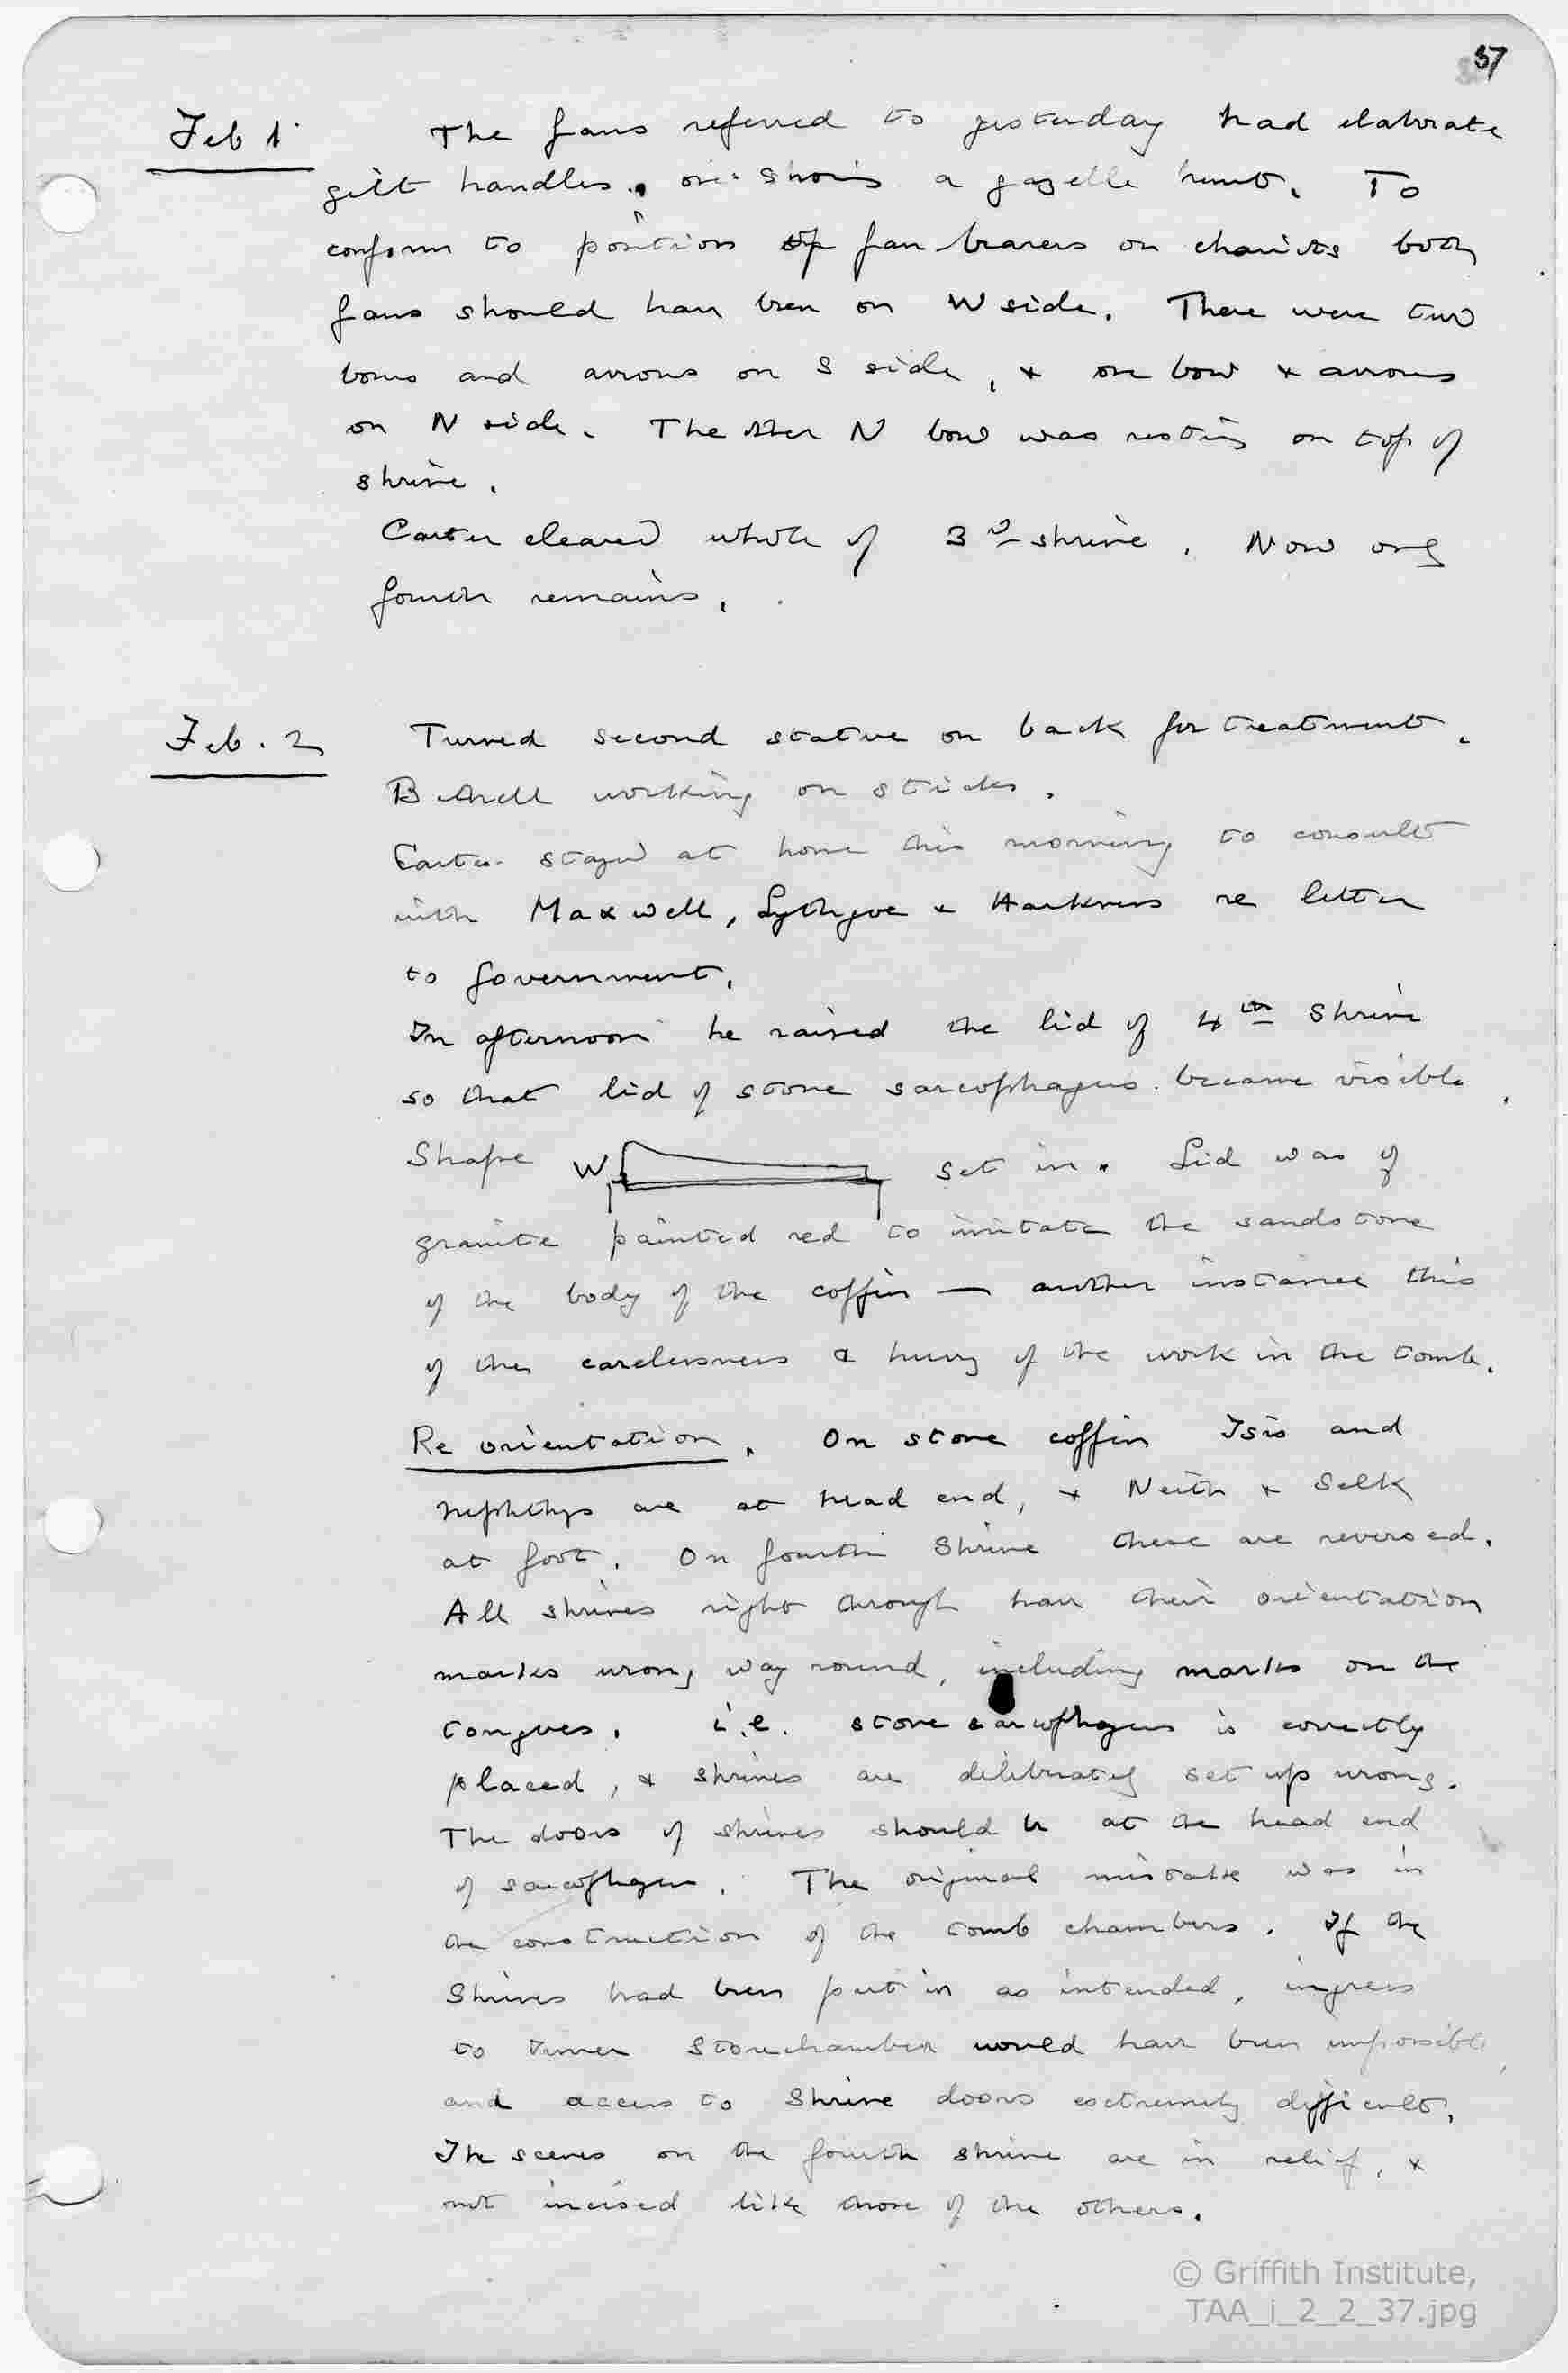 37
Feb 1. The fans referred to yesterday had elaborate
gilt handles, one showing a gazelle hunt. To
conform to position of fan bearers on chariots both
fans should have been on W side. There were two
bows and arrows on S side, & one bow & arrows
on N side. The other N bow was resting on top of
shrine.
Carter cleared whole of 3rd shrine. Now only
fourth remains.
Feb. 2 Turned second statue on back for treatment.
Bethell working on sticks.
Carter stayed at home this morning to consult
with Maxwell, Lythgoe & Harkness re letter
to government.
In afternoon he raised the lid of 4th shrine
so that lid of stone sarcophagus became visible.
Shape W set in. Lid was of
granite painted red to imitate the sandstone
of the body of the coffin — another instance this
of the carelessness & hurry of the work in the tomb.
Re orientation. On stone coffin Isis and
Nephthys are at head end, & Neith & Selk
at foot. On fourth shrine these are reversed.
All shrines right through have their orientation
marks wrong way round, including marks on the
tongues. i.e. stone sarcophagus is correctly
placed, & shrines are deliberately set up wrong.
The doors of shrines should be at the head end
of sarcophagus. The original mistake was in
the construction of the tomb chambers. If the
shrines had been put in as intended, ingress
to inner storechamber would have been impossible,
and access to shrine doors extremely difficult.
The scenes on the fourth shrine are in relief, &
not incised like those of the others.
© Griffith Institute,
TAA_i_2_2_37.jpg